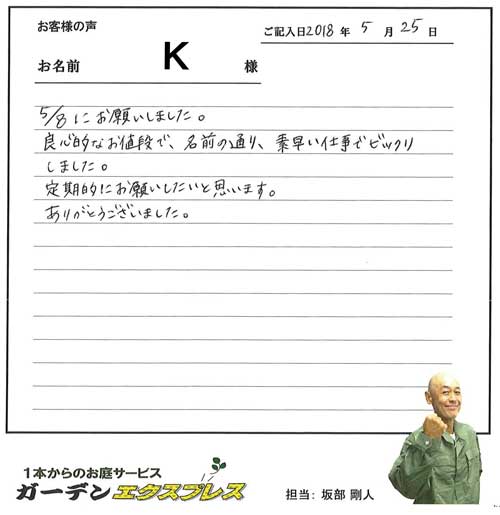 お客様の声
ご記入日2018年 5月 25日
お名前 K 様
5/8にお願いしました。
良心的なお値段で、名前の通り、素早い仕事でビックリ
しました。
定期的にお願いしたいと思います。
ありがとうございました。
1本からのお庭サービス
ガーデンエクスプレス
担当: 坂部 剛人